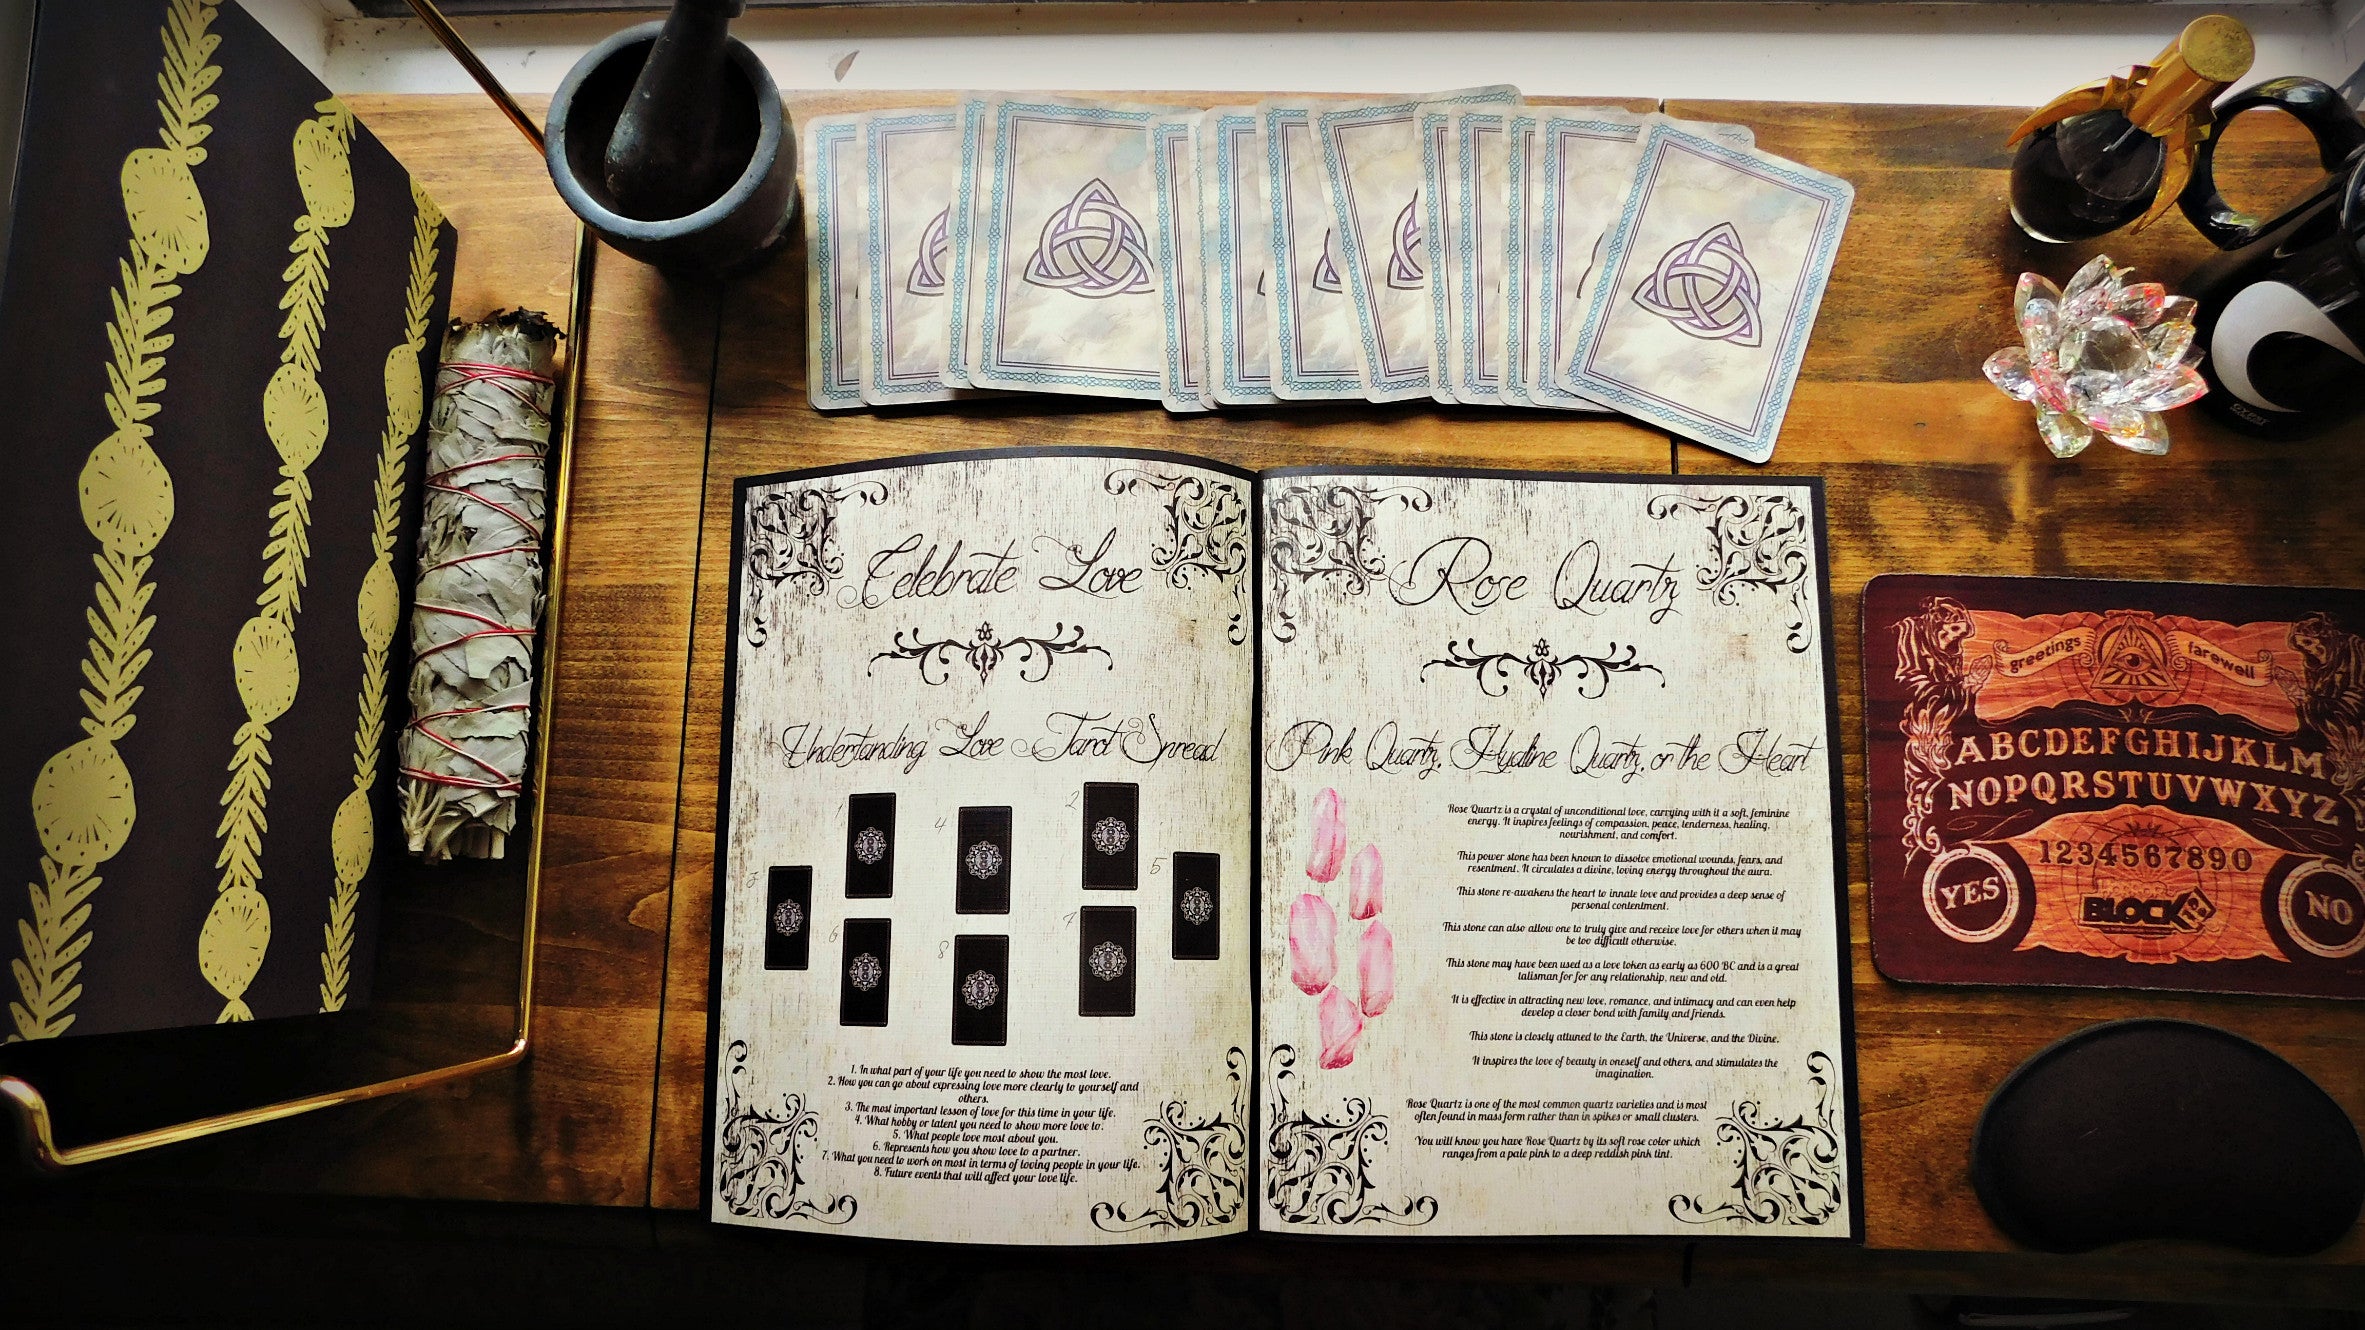 Celebrate Love
Understanding Love Tarot Spread
1
2
3
4
5
6
7
8
1. In what part of your life you need to show the most love.
2. How you can go about expressing love more clearly to yourself and
others.
3. The most important lesson of love for this time in your life.
4. What hobby or talent you need to show more love to.
5. What people love most about you.
6. Represents how you show love to a partner.
7. What you need to work on most in terms of loving people in your life.
8. Future events that will affect your love life.
Rose Quartz
Pink Quartz, Hyaline Quartz, or the Heart
Rose Quartz is a crystal of unconditional love, carrying with it a soft, feminine
energy. It inspires feelings of compassion, peace, tenderness, healing,
nourishment, and comfort.
This power stone has been known to dissolve emotional wounds, fears, and
resentment. It circulates a divine, loving energy throughout the aura.
This stone re-awakens the heart to innate love and provides a deep sense of
personal contentment.
This stone can also allow one to truly give and receive love for others when it may
be too difficult otherwise.
This stone may have been used as a love token as early as 600 BC and is a great
talisman for for any relationship, new and old.
It is effective in attracting new love, romance, and intimacy and can even help
develop a closer bond with family and friends.
This stone is closely attuned to the Earth, the Universe, and the Divine.
It inspires the love of beauty in oneself and others, and stimulates the
imagination.
Rose Quartz is one of the most common quartz varieties and is most
often found in mass form rather than in spikes or small clusters.
You will know you have Rose Quartz by its soft rose color which
ranges from a pale pink to a deep reddish pink tint.
greetings farewell
ABCDEFGHIJKLM
NOPQRSTUVWXYZ
1234567890
YES
NO
BLOCK